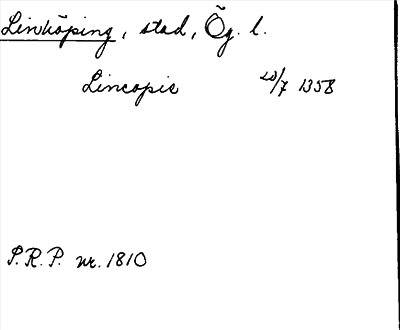 Linköping, stad, Ög. l.
Lincopie 20/7 1358
P.R.P. nr. 1810